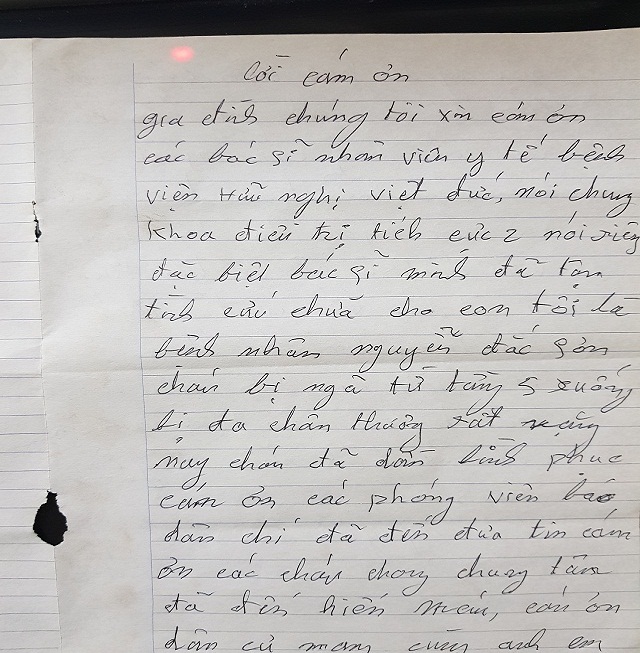 Lời cám ơn
gia đình chúng tôi xin cám ơn
các bác sĩ nhân viên y tế bệnh
viện Hữu nghị việt đức, nói chung
khoa điều trị tích cực 2 nói riêng
đặc biệt bác sĩ minh đã tận
tình cứu chữa cho con tôi là
bệnh nhân nguyễn đắc sơn
cháu bị ngã từ tầng 5 xuống
bị đa chấn thương rất nặng
nay cháu đã dần bình phục
cám ơn các phóng viên báo
dân chí đã đến đưa tin cám
ơn các cháu chong chung tâm
đã đến hiến máu, cám ơn
dân cư mạng cùng anh em